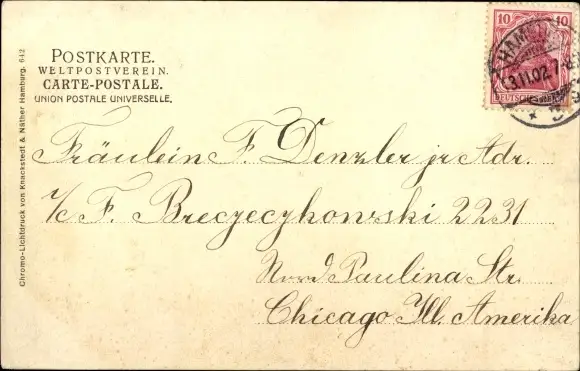 POSTKARTE.
WELTPOSTVEREIN.
CARTE-POSTALE.
UNION POSTALE UNIVERSELLE.
Chromo-Lichtdruck von Knackstedt & Näther Hamburg. 642
10 10
DEUTSCHES
HAMBURG
3.11.02.7-8
Fräulein F. Denzler jr Adr.
c/c F. Brecyecykowski 2231
Nord Paulina Str.
Chicago Ill. Amerika